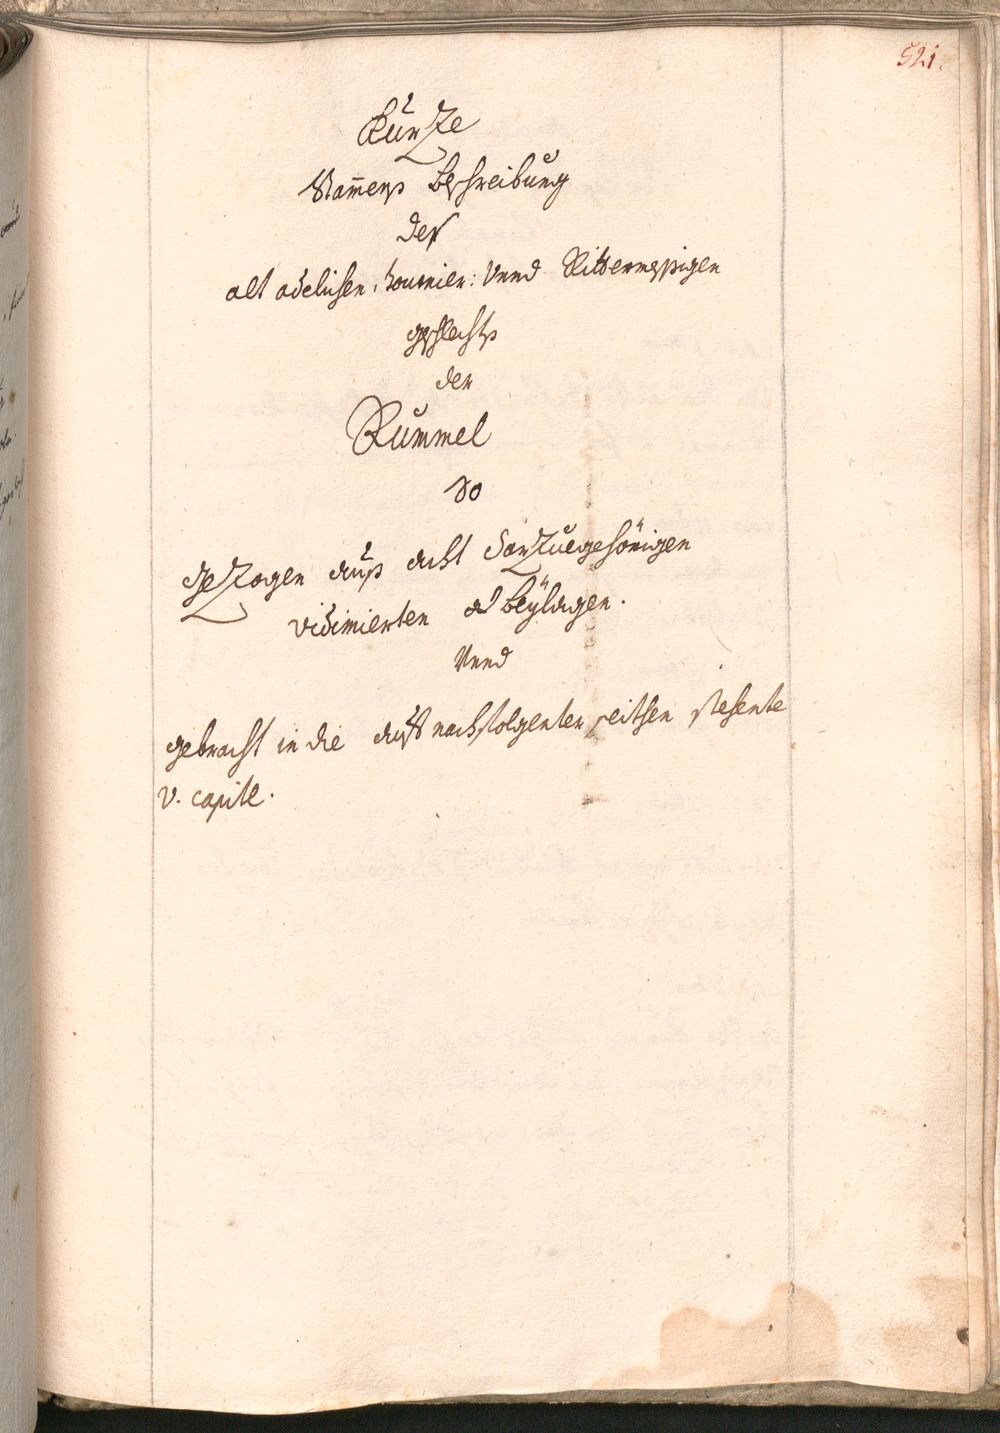 521.
Kurtze
Stam̄ens Beschreibung
des
alt adelichen, Tournier: Vnnd Rittermeßigen
geschlechts
der
Rummel
So
getzogen auß acht dartzuegehörigen
vidimierten beÿlagen.
Vnnd
gebracht in die auf nachfolgenter seithen stehente
V. capitl.